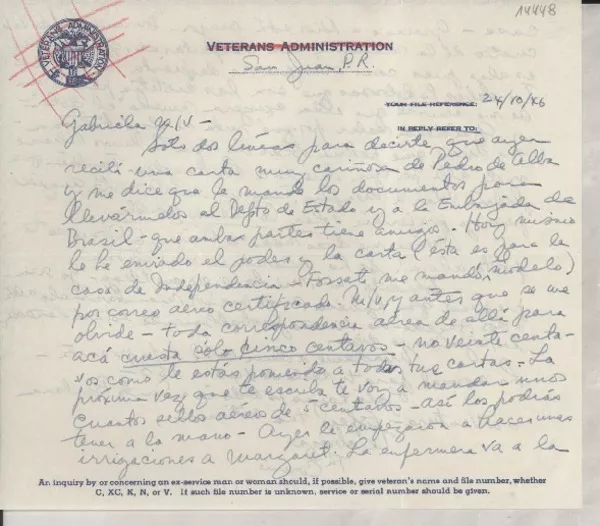 14448
VETERANS ADMINISTRATION
VETERANS ADMINISTRATION
San Juan, P.R.
YOUR FILE REFERENCE:
24/10/46
IN REPLY REFER TO:
Gabriela m/v -
Solo dos líneas para decirte que ayer
recibí una carta muy cariñosa de Pedro de Alba
y me dice que le mande los documentos para
llevármelos al Depto de Estado y a la Embajada de
Brasil - que ambas partes tiene amigos. Hoy mismo
le he enviado el poder y la carta (ésta es para la
casa de Independencia - Fossati me mandó modelo)
por correo aéreo certificado. M/v, y antes que se me
olvide - toda correspondencia aérea de allí para
acá cuesta sólo cinco centavos - no veinte centa-
vos como le estás poniendo a todas tus cartas - La
próxima vez que te escriba te voy a mandar unos
cuantos sellos aéreo de 5 centavos - así los podrás
tener a la mano - Ayer le empezaron a hacer unas
irrigaciones a Margaret. La enfermera va a la
An inquiry by or concerning an ex-service man or woman should, if possible, give veteran's name and file number, whether
C, XC, K, N, or V. If such file number is unknown, service or serial number should be given.